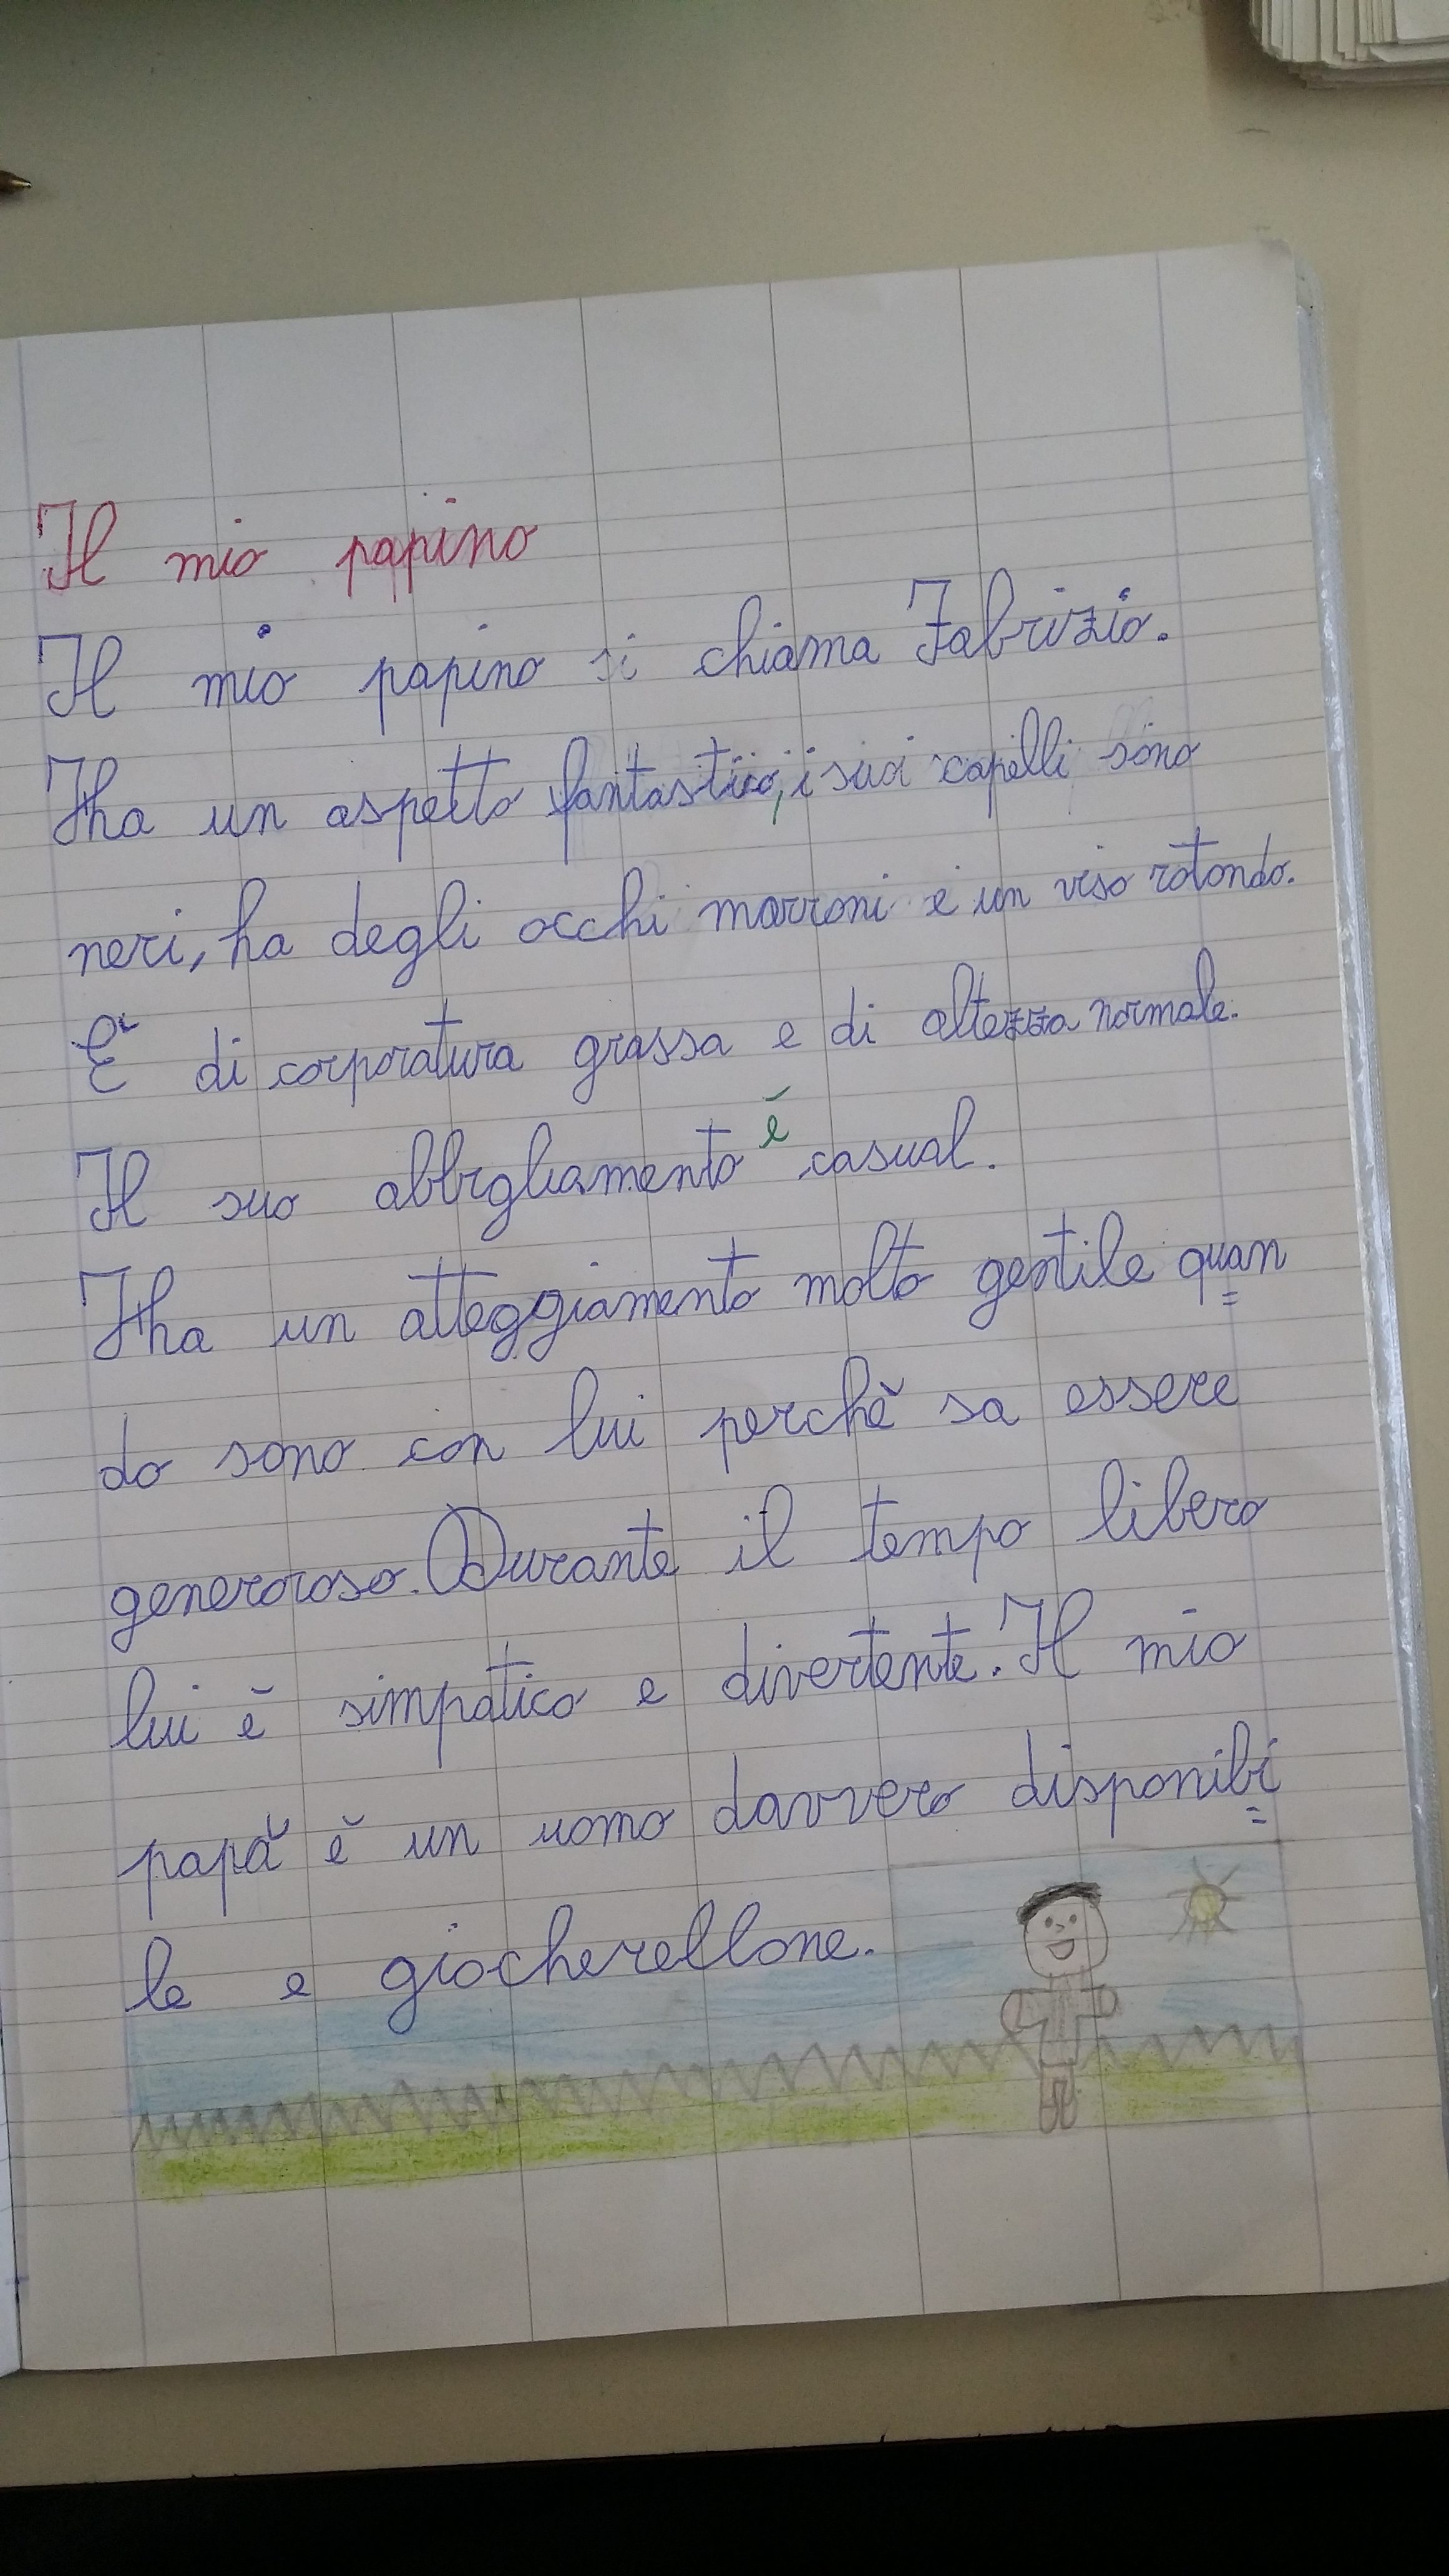 Il mio papino
Il mio papino si chiama Fabrizio.
Ha un aspetto fantastico, i suoi capelli sono
neri, ha degli occhi marroni e un viso rotondo.
È di corporatura grassa e di altezza normale.
Il suo abbigliamento è casual.
Ha un atteggiamento molto gentile quan=
do sono con lui perchè sa essere
generoroso. Durante il tempo libero
lui è simpatico e divertente. Il mio
papà è un uomo davvero disponibi=
le e giocherellone.